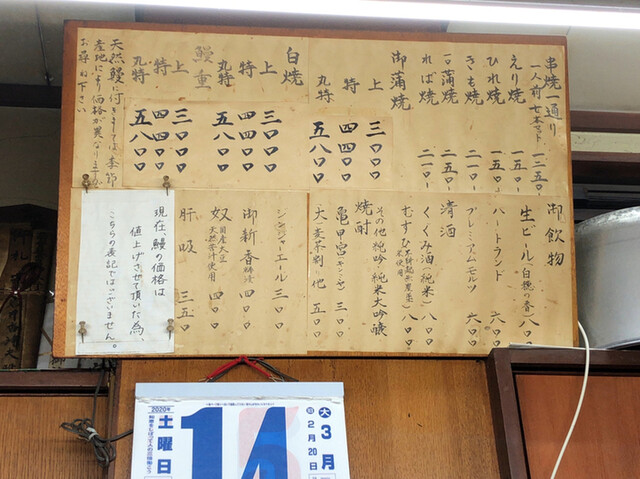 串焼一通り
一人前 七本マデ 一二五〇
えり焼 一五〇
ひれ焼 一五〇
きも焼 二一〇
一口蒲焼 二五〇
れば焼 二一〇
御蒲焼
上 三〇〇〇
特 四四〇〇
丸特 五八〇〇
白焼
上 三〇〇〇
特 四四〇〇
丸特 五八〇〇
鰻重
上 三〇〇〇
特 四四〇〇
丸特 五八〇〇
天然鰻に付きましては季節
産地により価格が異なりますが
お尋ね下さい
御飲物
生ビール(白穂の香) 八〇〇
ハートランド 六〇〇
プレミアムモルツ 六〇〇
清酒
くくみ酒(純米) 八〇〇
むすひ 八〇〇
その他 純吟・純米大吟醸
焼酎
亀甲宮 キンミヤ 三〇〇
大麦茶割 他 五〇〇
ジンジャエール 三〇〇
御新香 四〇〇
奴 国産大豆 天然苦汁使用 四〇〇
肝吸 三五〇
現在、鰻の価格は
値上げさせて頂いた為、
こちらの表記ではございません。
2020年
土曜日
14
大 3月
2月20日